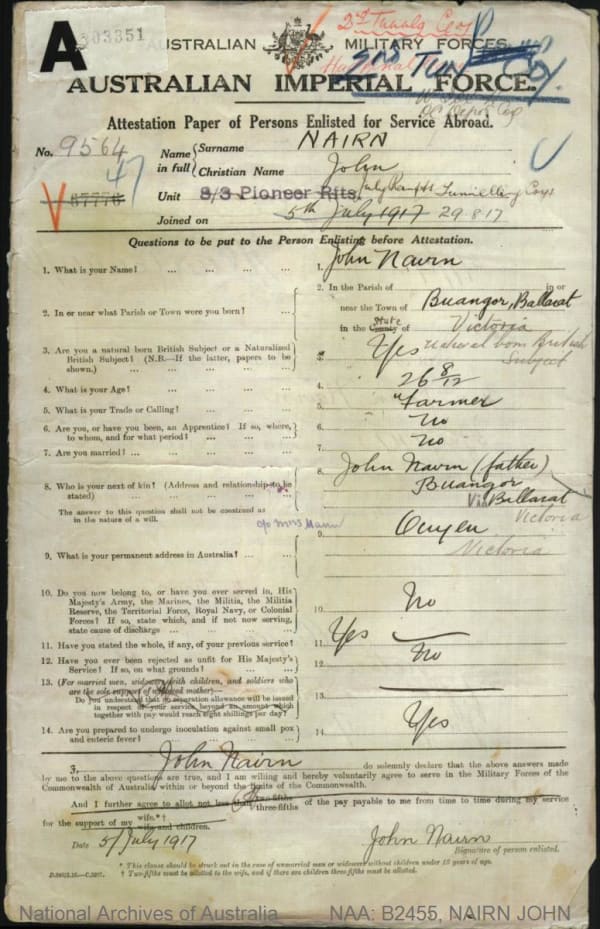 A 303351
2nd Tunnlg Coy
AUSTRALIAN MILITARY FORCES.
AUSTRALIAN IMPERIAL FORCE.
Attestation Paper of Persons Enlisted for Service Abroad.
No. 9564
47
37776
Name in full { Surname NAIRN
Christian Name John
Unit 3/3 Pioneer Rfts. July Reinfts Tunnelling Coys
Joined on 5th July 1917 29.8.17
Questions to be put to the Person Enlisting before Attestation.
1. What is your Name? ... ... ... ... 1. John Nairn
2. In or near what Parish or Town were you born? ... 2. In the Parish of in or near the Town of Buangor, Ballarat in the County of State Victoria
3. Are you a natural born British Subject or a Naturalized British Subject? (N.B.—If the latter, papers to be shown.) ... 3. Yes natural born British Subject
4. What is your Age? ... 4. 26 8/12
5. What is your Trade or Calling? ... 5. Farmer
6. Are you, or have you been, an Apprentice? If so, where, to whom, and for what period? ... 6. No
7. Are you married? ... 7. No
8. Who is your next of kin? (Address and relationship to be stated) ... 8. John Nairn (father)
Buangor
Via Ballarat
Victoria
The answer to this question shall not be construed as in the nature of a will.
c/o Mrs Mann
9. What is your permanent address in Australia? ... 9. Ouyen
Victoria
10. Do you now belong to, or have you ever served in, His Majesty's Army, the Marines, the Militia, the Militia Reserve, the Territorial Force, Royal Navy, or Colonial Forces? If so, state which, and if not now serving, state cause of discharge ... 10. No
11. Have you stated the whole, if any, of your previous service? 11. Yes
12. Have you ever been rejected as unfit for His Majesty's Service? If so, on what grounds? ... 12. No
13. (For married men, widowers with children, and soldiers who are the sole support of widowed mother)—
Do you understand that no separation allowance will be issued in respect of your service beyond an amount which together with pay would reach eight shillings per day? 13.
14. Are you prepared to undergo inoculation against small pox and enteric fever? ... 14. Yes
I, John Nairn do solemnly declare that the above answers made
by me to the above questions are true, and I am willing and hereby voluntarily agree to serve in the Military Forces of the
Commonwealth of Australia within or beyond the limits of the Commonwealth.
And I further agree to allot not less than two-fifths three-fifths of the pay payable to me from time to time during my service
for the support of my wife.*† wife and children.
Date 5/July/1917 John Nairn
Signature of person enlisted.
* This clause should be struck out in the case of unmarried men or widowers without children under 18 years of age.
† Two-fifths must be allotted to the wife, and if there are children three-fifths must be allotted.
National Archives of Australia NAA: B2455, NAIRN JOHN